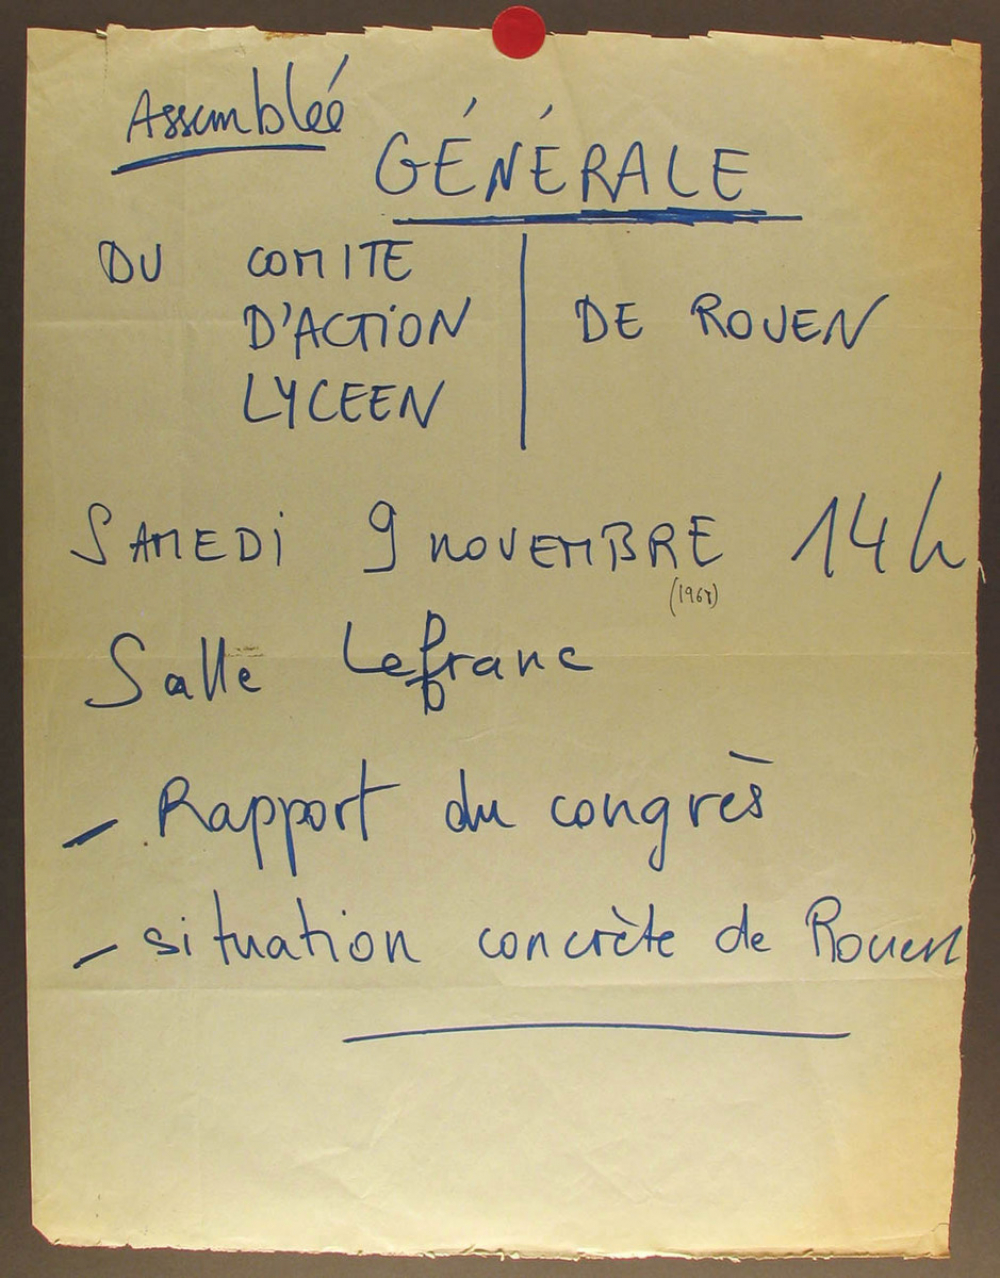 Assembleé
GÉNÉRALE
DU COMITE
D'ACTION
LYCEEN
DE ROUEN
SAMEDI 9 NOVEMBRE 14h
(1968)
Salle Lefranc
- Rapport du congrès
- situation concrète de Rouen